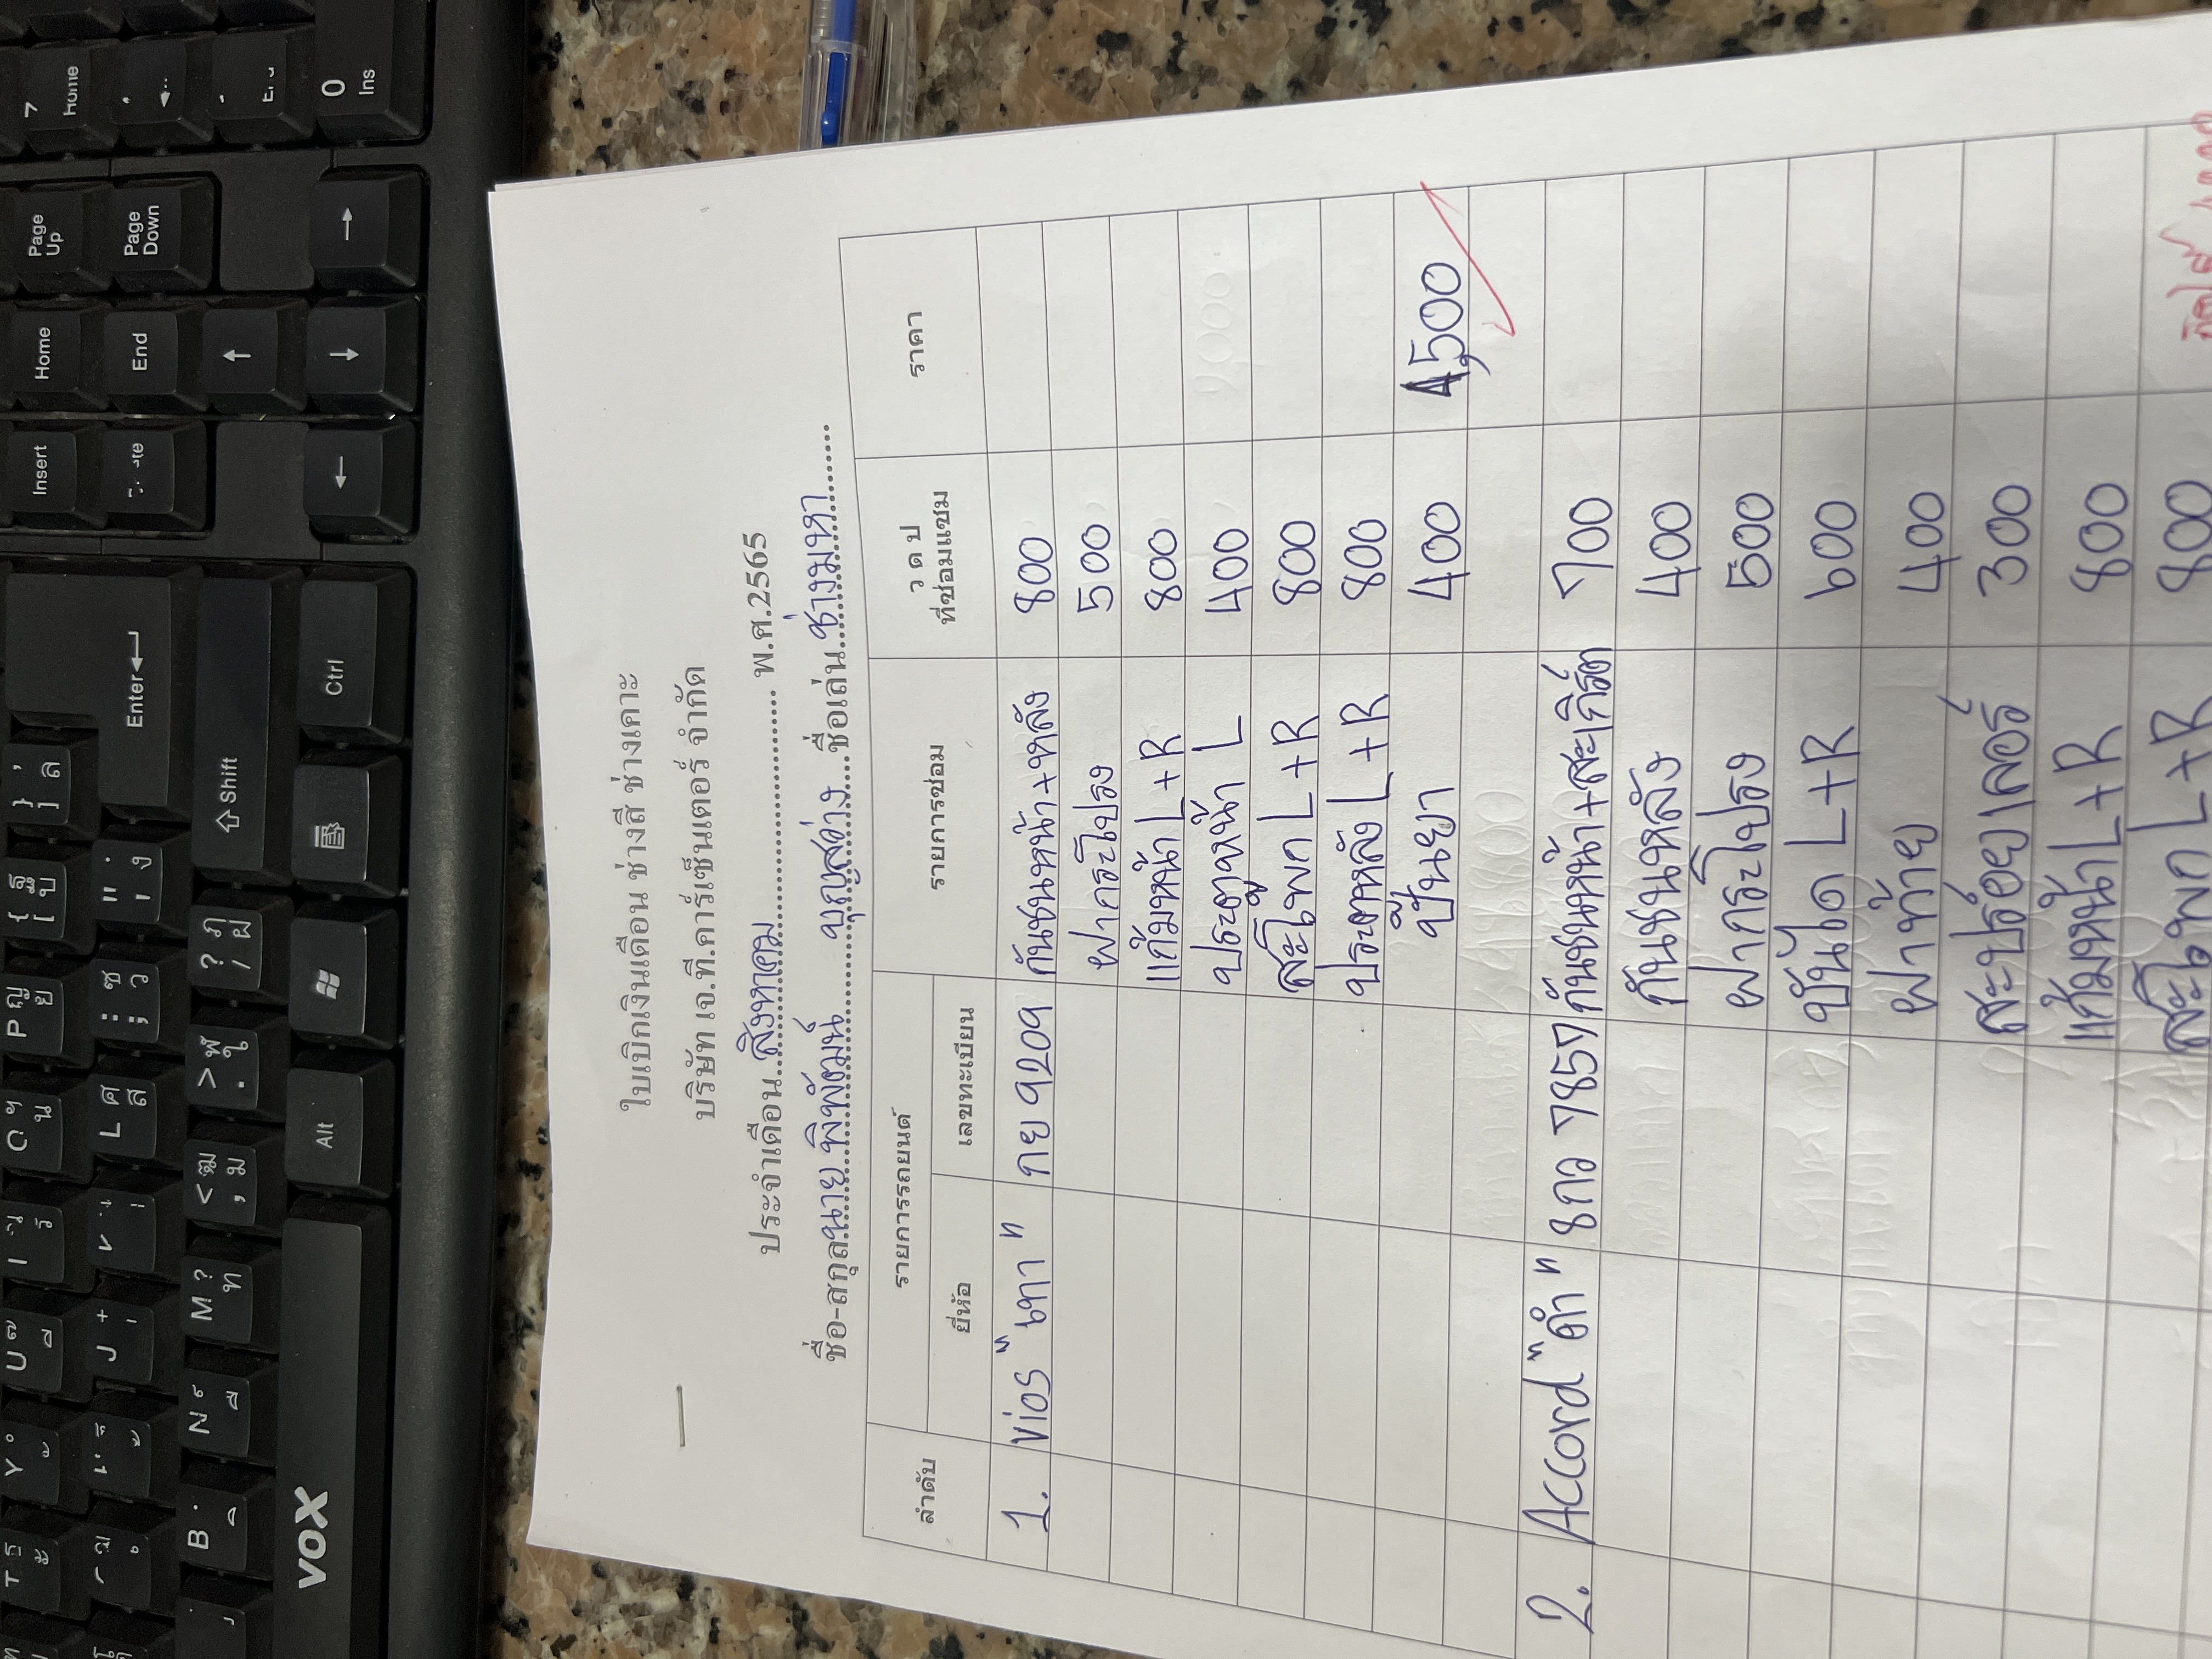 ใบเบิกเงินเดือน ช่างสี ช่างเคาะ
บริษัท เจ.ที.คาร์เซ็นเตอร์ จำกัด
ประจำเดือน..สิงหาคม.......... พ.ศ.2565
ชื่อ-สกุล.นาย พิพัฒน์ บุญสว่าง....ชื่อเล่น.ช่างมหา.......
ลำดับ รายการรถยนต์ รายการซ่อม ว ด ป ที่ซ่อมแซม ราคา
ยี่ห้อ เลขทะเบียน
1. Vios "เทา" กย 9209 กันชนหน้า+หลัง 800
ฝากระโปรง 500
แก้มหน้า L+R 800
ประตูหน้า L 400
สะโพก L+R 800
ประตูหลัง L+R 800
ปั้นยา 400 4,500
2. Accord "ดำ" 8กว 7857 กันชนหน้า+สะเกิ๊ต 700
กันชนหลัง 400
ฝากระโปรง 500
บันได L+R 600
ฝาท้าย 400
สะปรอยเลอร์ 300
แก้มหน้า L+R 800
สะโพก L+R 800
Home
Ins
Page Up
Page Down
Home
End
Insert
Enter
Shift
Ctrl
Alt
VOX